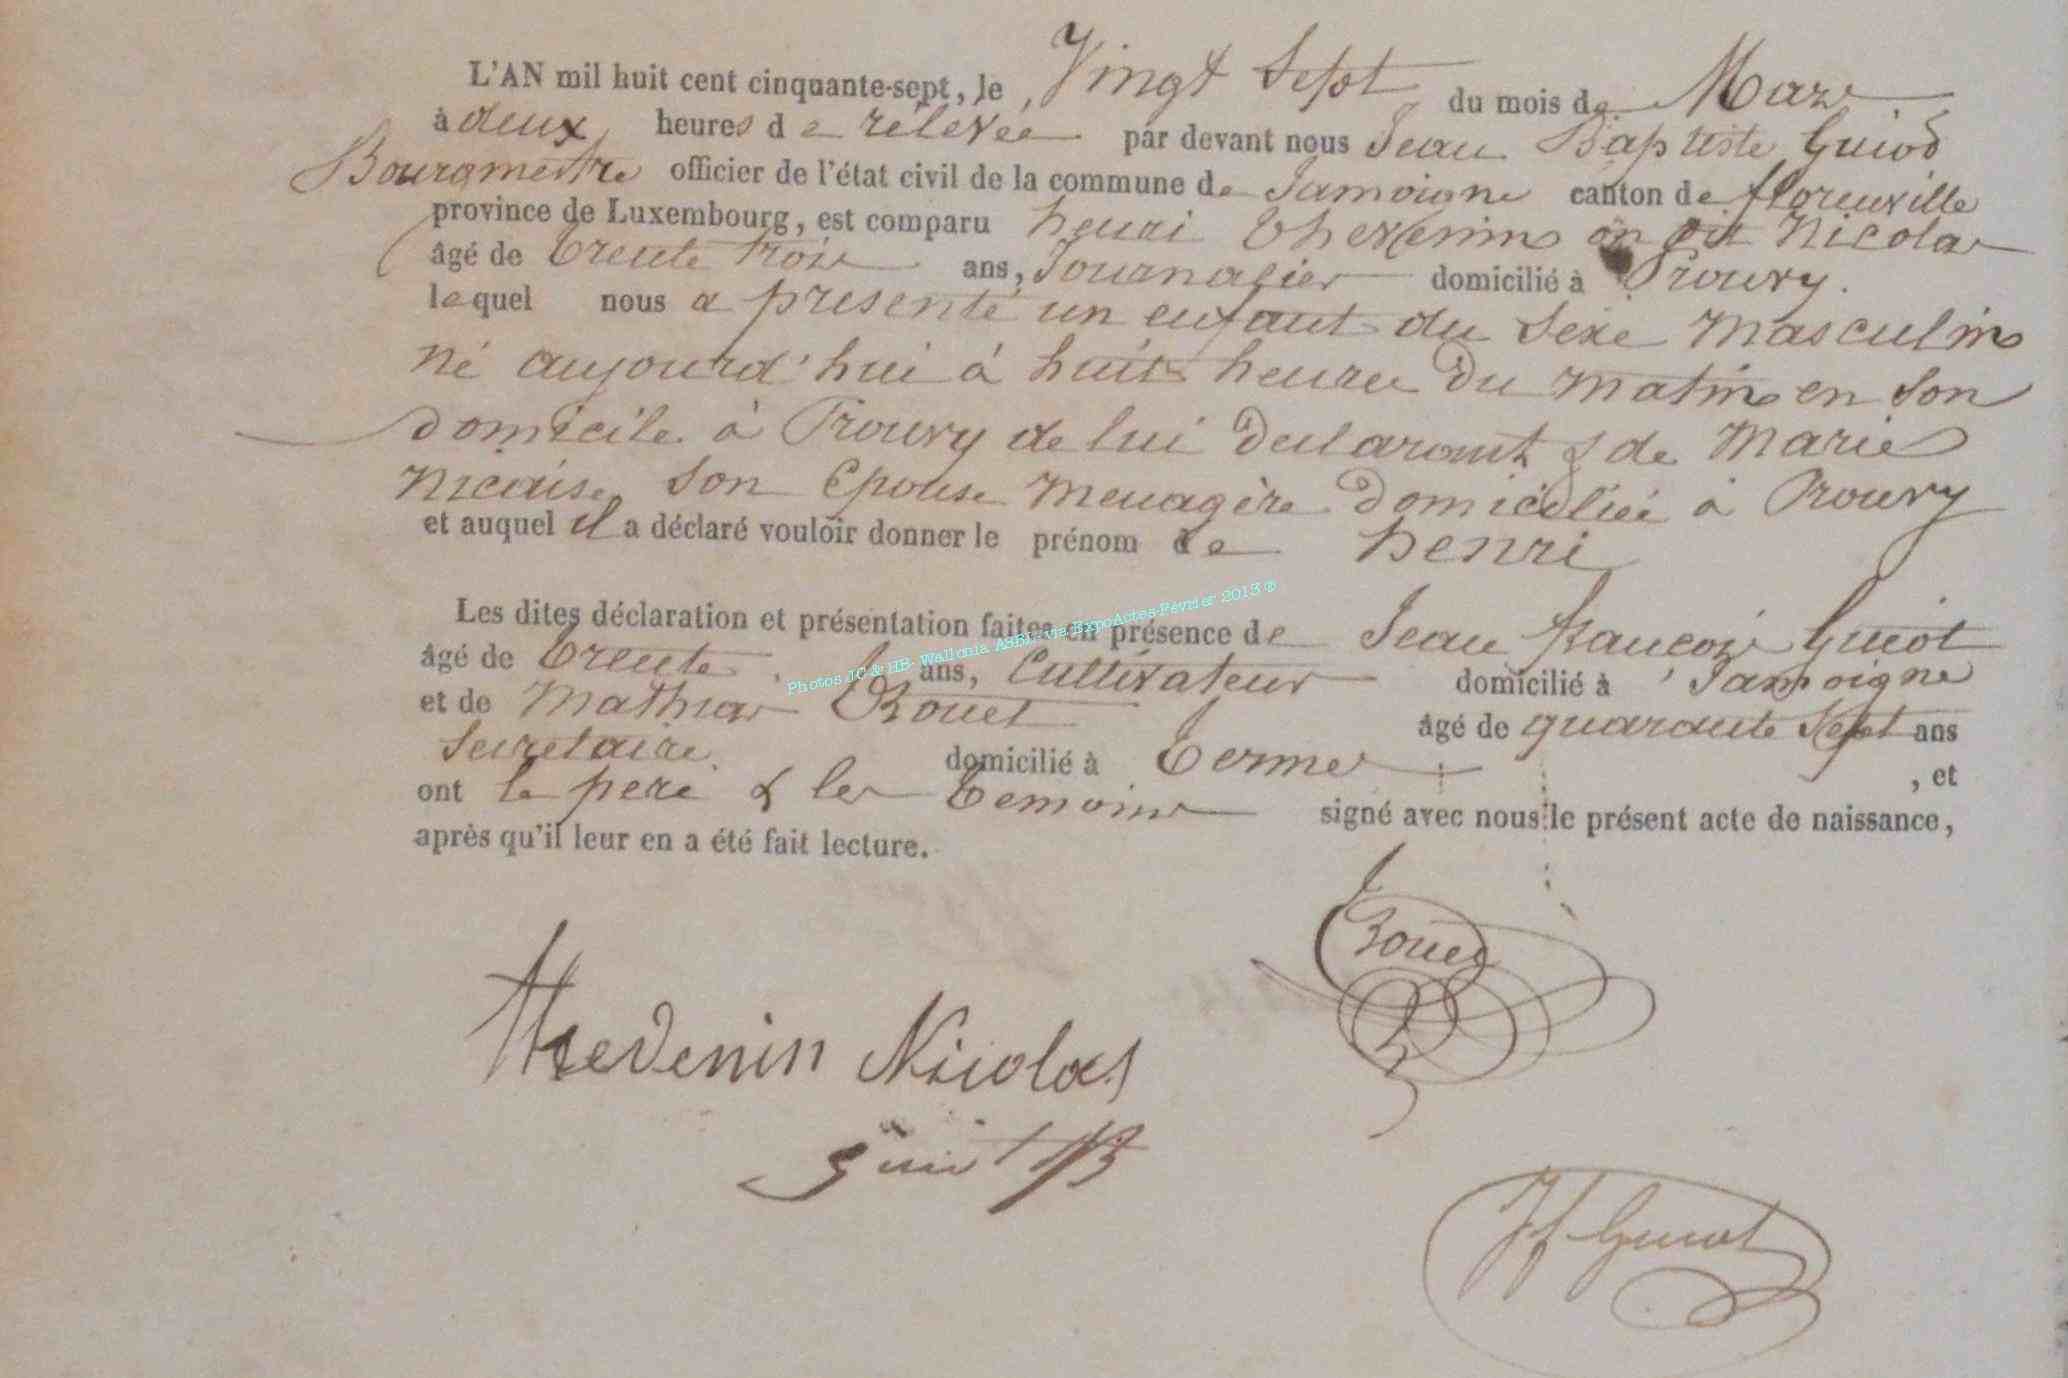 L'AN mil huit cent cinquante-sept, le Vingt Sept du mois de Mars
à deux heures de rélevée par devant nous Jean Baptiste Guiot
Bourgmestre officier de l'état civil de la commune de Jamoigne canton de florenville
province de Luxembourg, est comparu henri thevenin on dit Nicolas
âgé de trente trois ans, Journalier domicilié à Prouvy.
lequel nous a présenté un enfant du Sexe Masculin
né aujourd'hui à huit heures du matin en Son
domicile à Prouvy de lui declarant & de Marie
Nicaise Son Epouse Menagère domiciliée à Prouvy
et auquel il a déclaré vouloir donner le prénom de henri
Les dites déclaration et présentation faites en présence de Jean françois Guiot
âgé de trente ans, Cultivateur domicilié à Jamoigne
et de Mathias Bouet âgé de quarante Sept ans
Secretaire domicilié à termes , et
ont le pere & les temoins signé avec nous le présent acte de naissance,
après qu'il leur en a été fait lecture.
Photos JC & HB- Wallonia ASBL- via ExpoActes-Février 2013 ®
Bouet
Thevenin Nicolas
Guiot JB
Jf Guiot